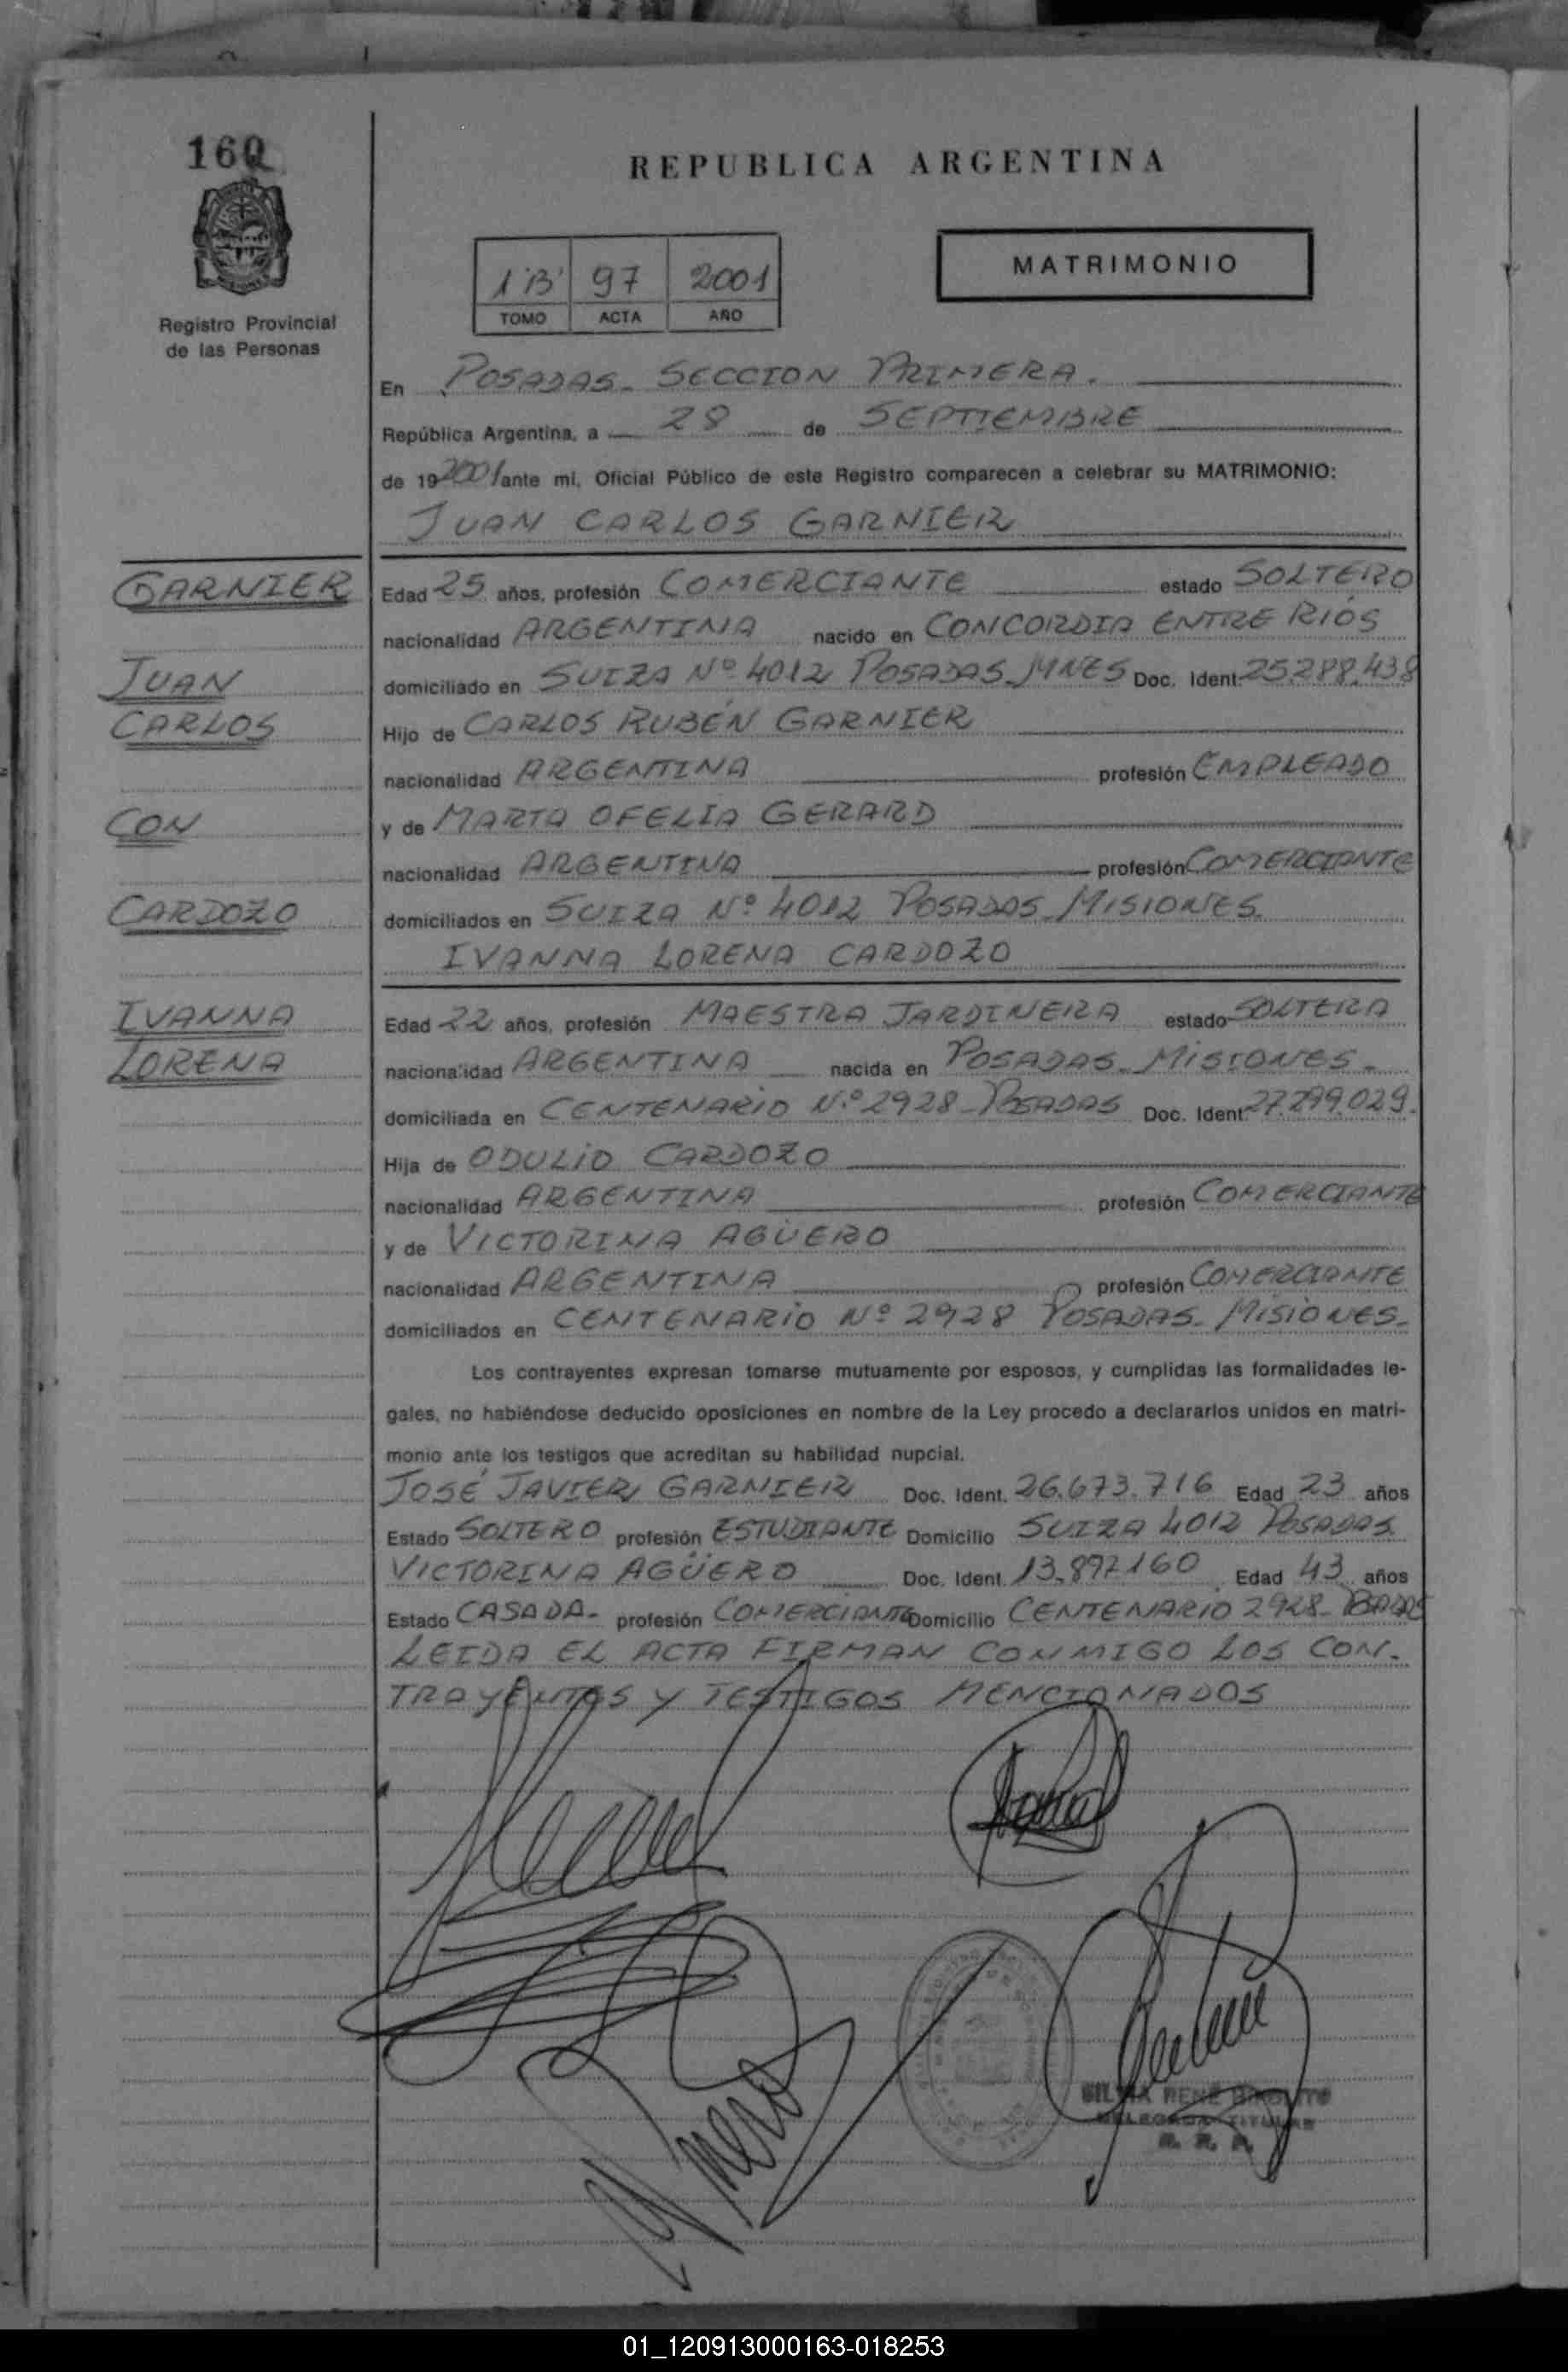 160
REPUBLICA ARGENTINA
Registro Provincial
de las Personas
1 "B" 97 2001
TOMO ACTA AÑO
MATRIMONIO
En POSADAS - SECCION PRIMERA.
República Argentina, a 28 de SEPTIEMBRE
de 19 2001 ante mí, Oficial Público de este Registro comparecen a celebrar su MATRIMONIO:
JUAN CARLOS GARNIER
GARNIER
JUAN
CARLOS
CON
CARDOZO
IVANNA
LORENA
Edad 25 años, profesión COMERCIANTE estado SOLTERO
nacionalidad ARGENTINA nacido en CONCORDIA ENTRE RIOS
domiciliado en SUIZA Nº 4012 POSADAS-MNES Doc. Ident. 25.288.438
Hijo de CARLOS RUBÉN GARNIER
nacionalidad ARGENTINA profesión EMPLEADO
y de MARTA OFELIA GERARD
nacionalidad ARGENTINA profesión COMERCIANTE
domiciliados en SUIZA Nº 4012 POSADAS-MISIONES
IVANNA LORENA CARDOZO
Edad 22 años, profesión MAESTRA JARDINERA estado SOLTERA
nacionalidad ARGENTINA nacida en POSADAS-MISIONES-
domiciliada en CENTENARIO Nº 2928-POSADAS Doc. Ident. 27.299.029-
Hija de ODULIO CARDOZO
nacionalidad ARGENTINA profesión COMERCIANTE
y de VICTORINA AGÜERO
nacionalidad ARGENTINA profesión COMERCIANTE
domiciliados en CENTENARIO Nº 2928 POSADAS-MISIONES-
Los contrayentes expresan tomarse mutuamente por esposos, y cumplidas las formalidades le-
gales, no habiéndose deducido oposiciones en nombre de la Ley procedo a declararlos unidos en matri-
monio ante los testigos que acreditan su habilidad nupcial.
JOSÉ JAVIER GARNIER Doc. Ident. 26.673.716 Edad 23 años
Estado SOLTERO profesión ESTUDIANTE Domicilio SUIZA 4012 POSADAS
VICTORINA AGÜERO Doc. Ident. 13.897.160 Edad 43 años
Estado CASADA- profesión COMERCIANTE Domicilio CENTENARIO 2928-
LEIDA EL ACTA FIRMAN CONMIGO LOS CON-
TRAYENTES Y TESTIGOS MENCIONADOS
SILVIA RENÉ
DELEGADA TITULAR
R. P. P.
01_120913000163-018253